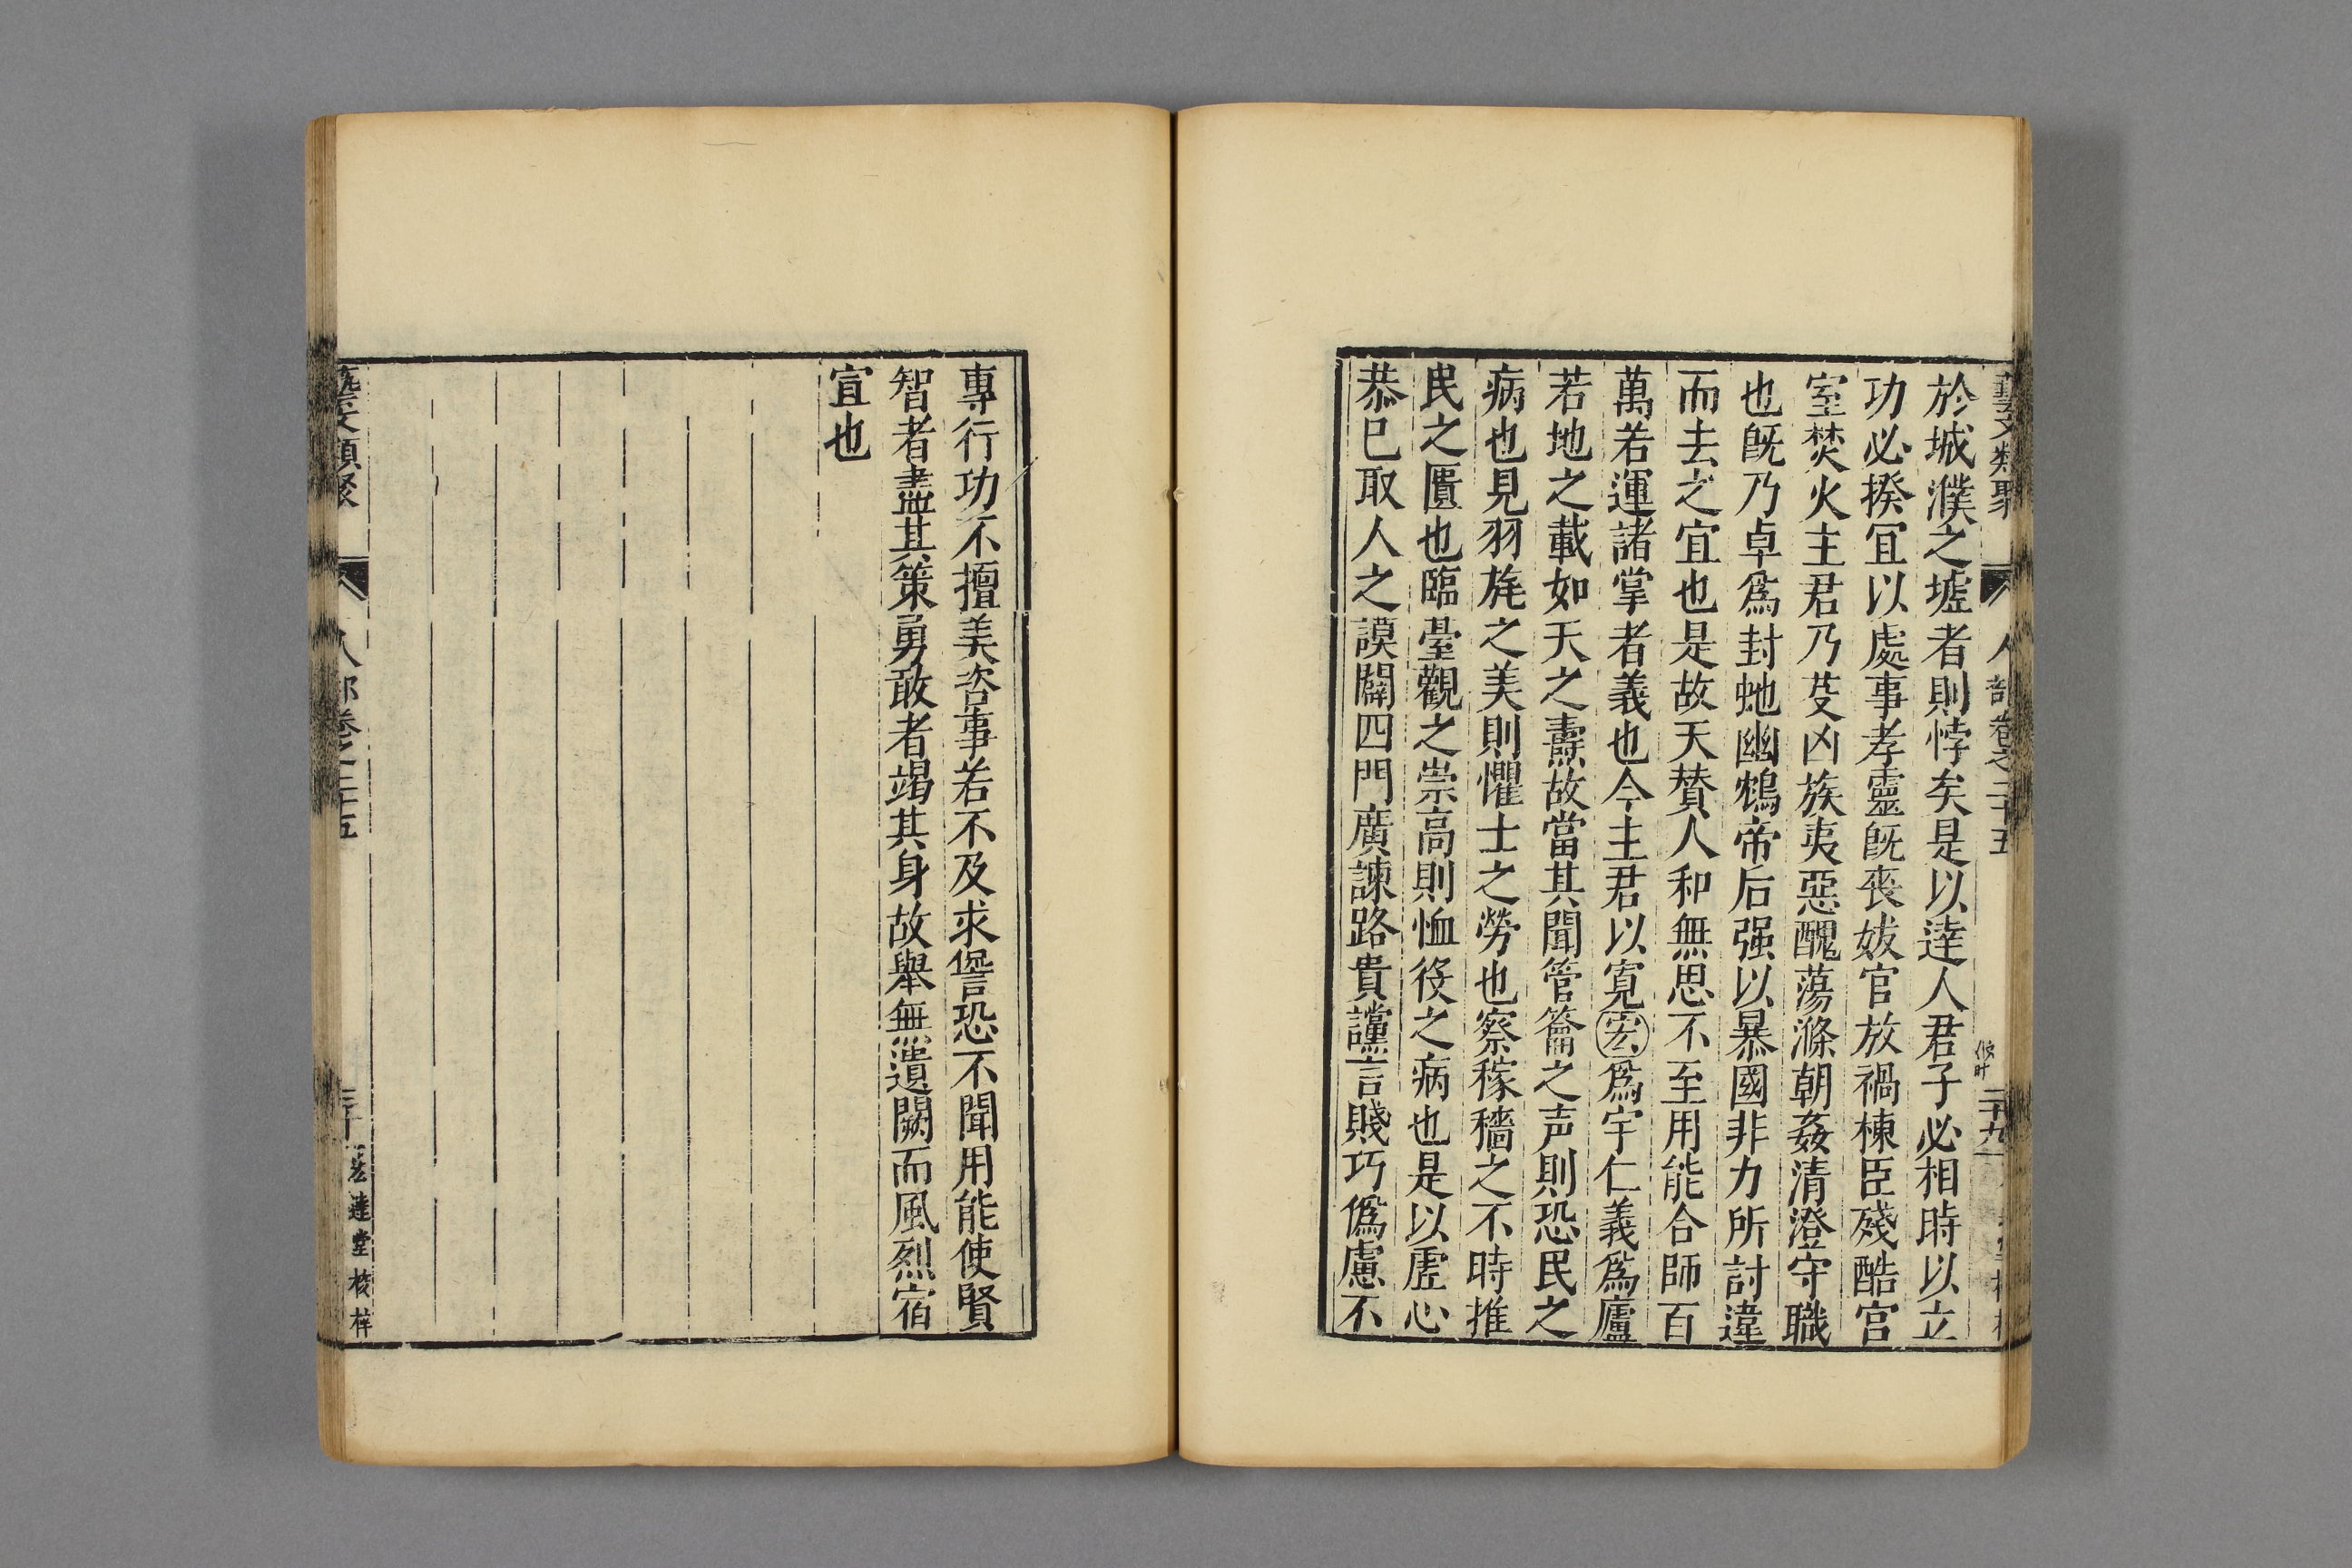 藝文類聚 人部卷之二十五 二十九
於城濮之墟者則悖矣是以達人君子必相時以立
功必揆宜以處事孝靈旣喪妖官放禍棟臣殘酷宮
室焚火主君乃芟凶族夷惡醜蕩滌朝姦清澄守職
也旣乃卓爲封虵幽鴆帝后强以暴國非力所討違
而去之宜也是故天賛人和無思不至用能合師百
萬若運諸掌者義也今主君以寛宏爲宇仁義爲廬
若地之載如天之燾故當其聞管籥之声則恐民之
病也見羽旄之美則懼士之勞也察稼穡之不時推
民之匱也臨臺觀之崇高則恤役之病也是以虛心
恭已取人之謨闢四門廣諫路貴讜言賤巧僞慮不
專行功不擅美咨事若不及求諐恐不聞用能使賢
智者盡其策勇敢者竭其身故舉無遺闕而風烈宿
宣也
藝文類聚 人部卷之二十五 三十 宏達堂校梓